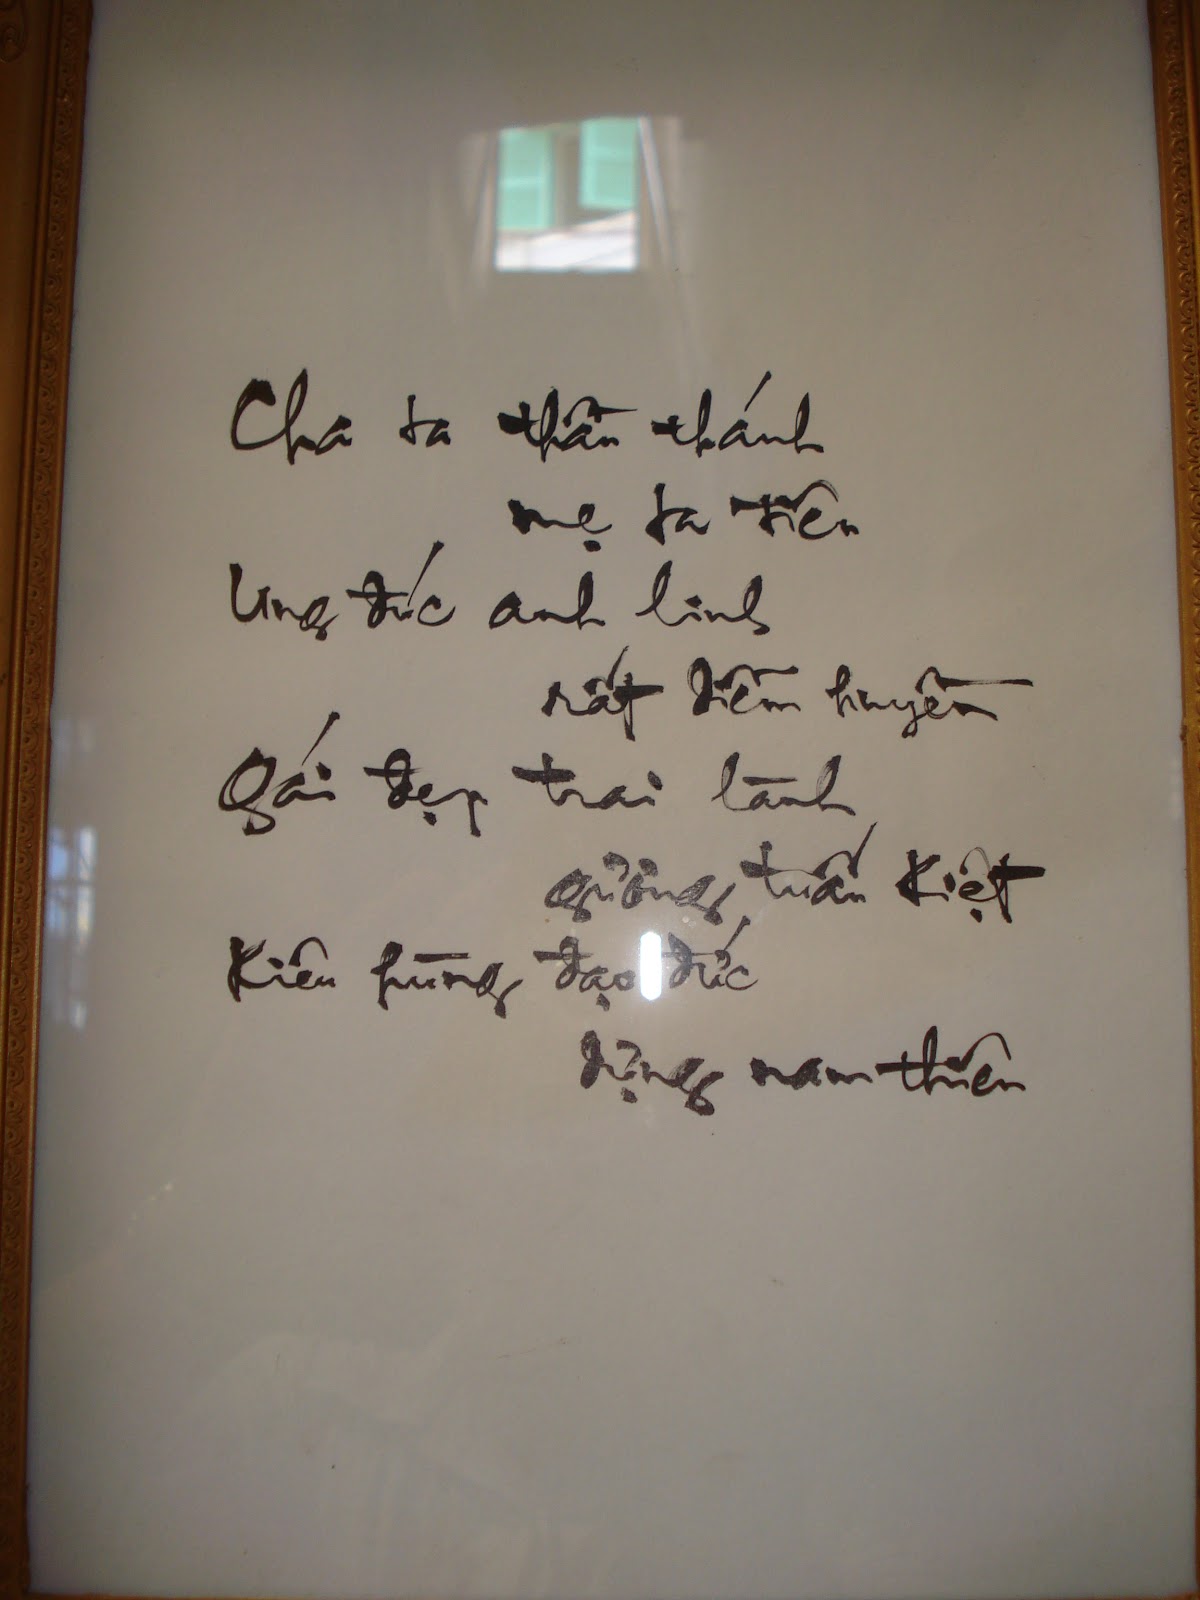 Cha ta thần thánh
mẹ ta tiên
Ung đúc anh linh
rất diễm huyền
Gái đẹp trai lành
giống tuấn kiệt
Kiên hùng đạo đức
dựng nam thiên